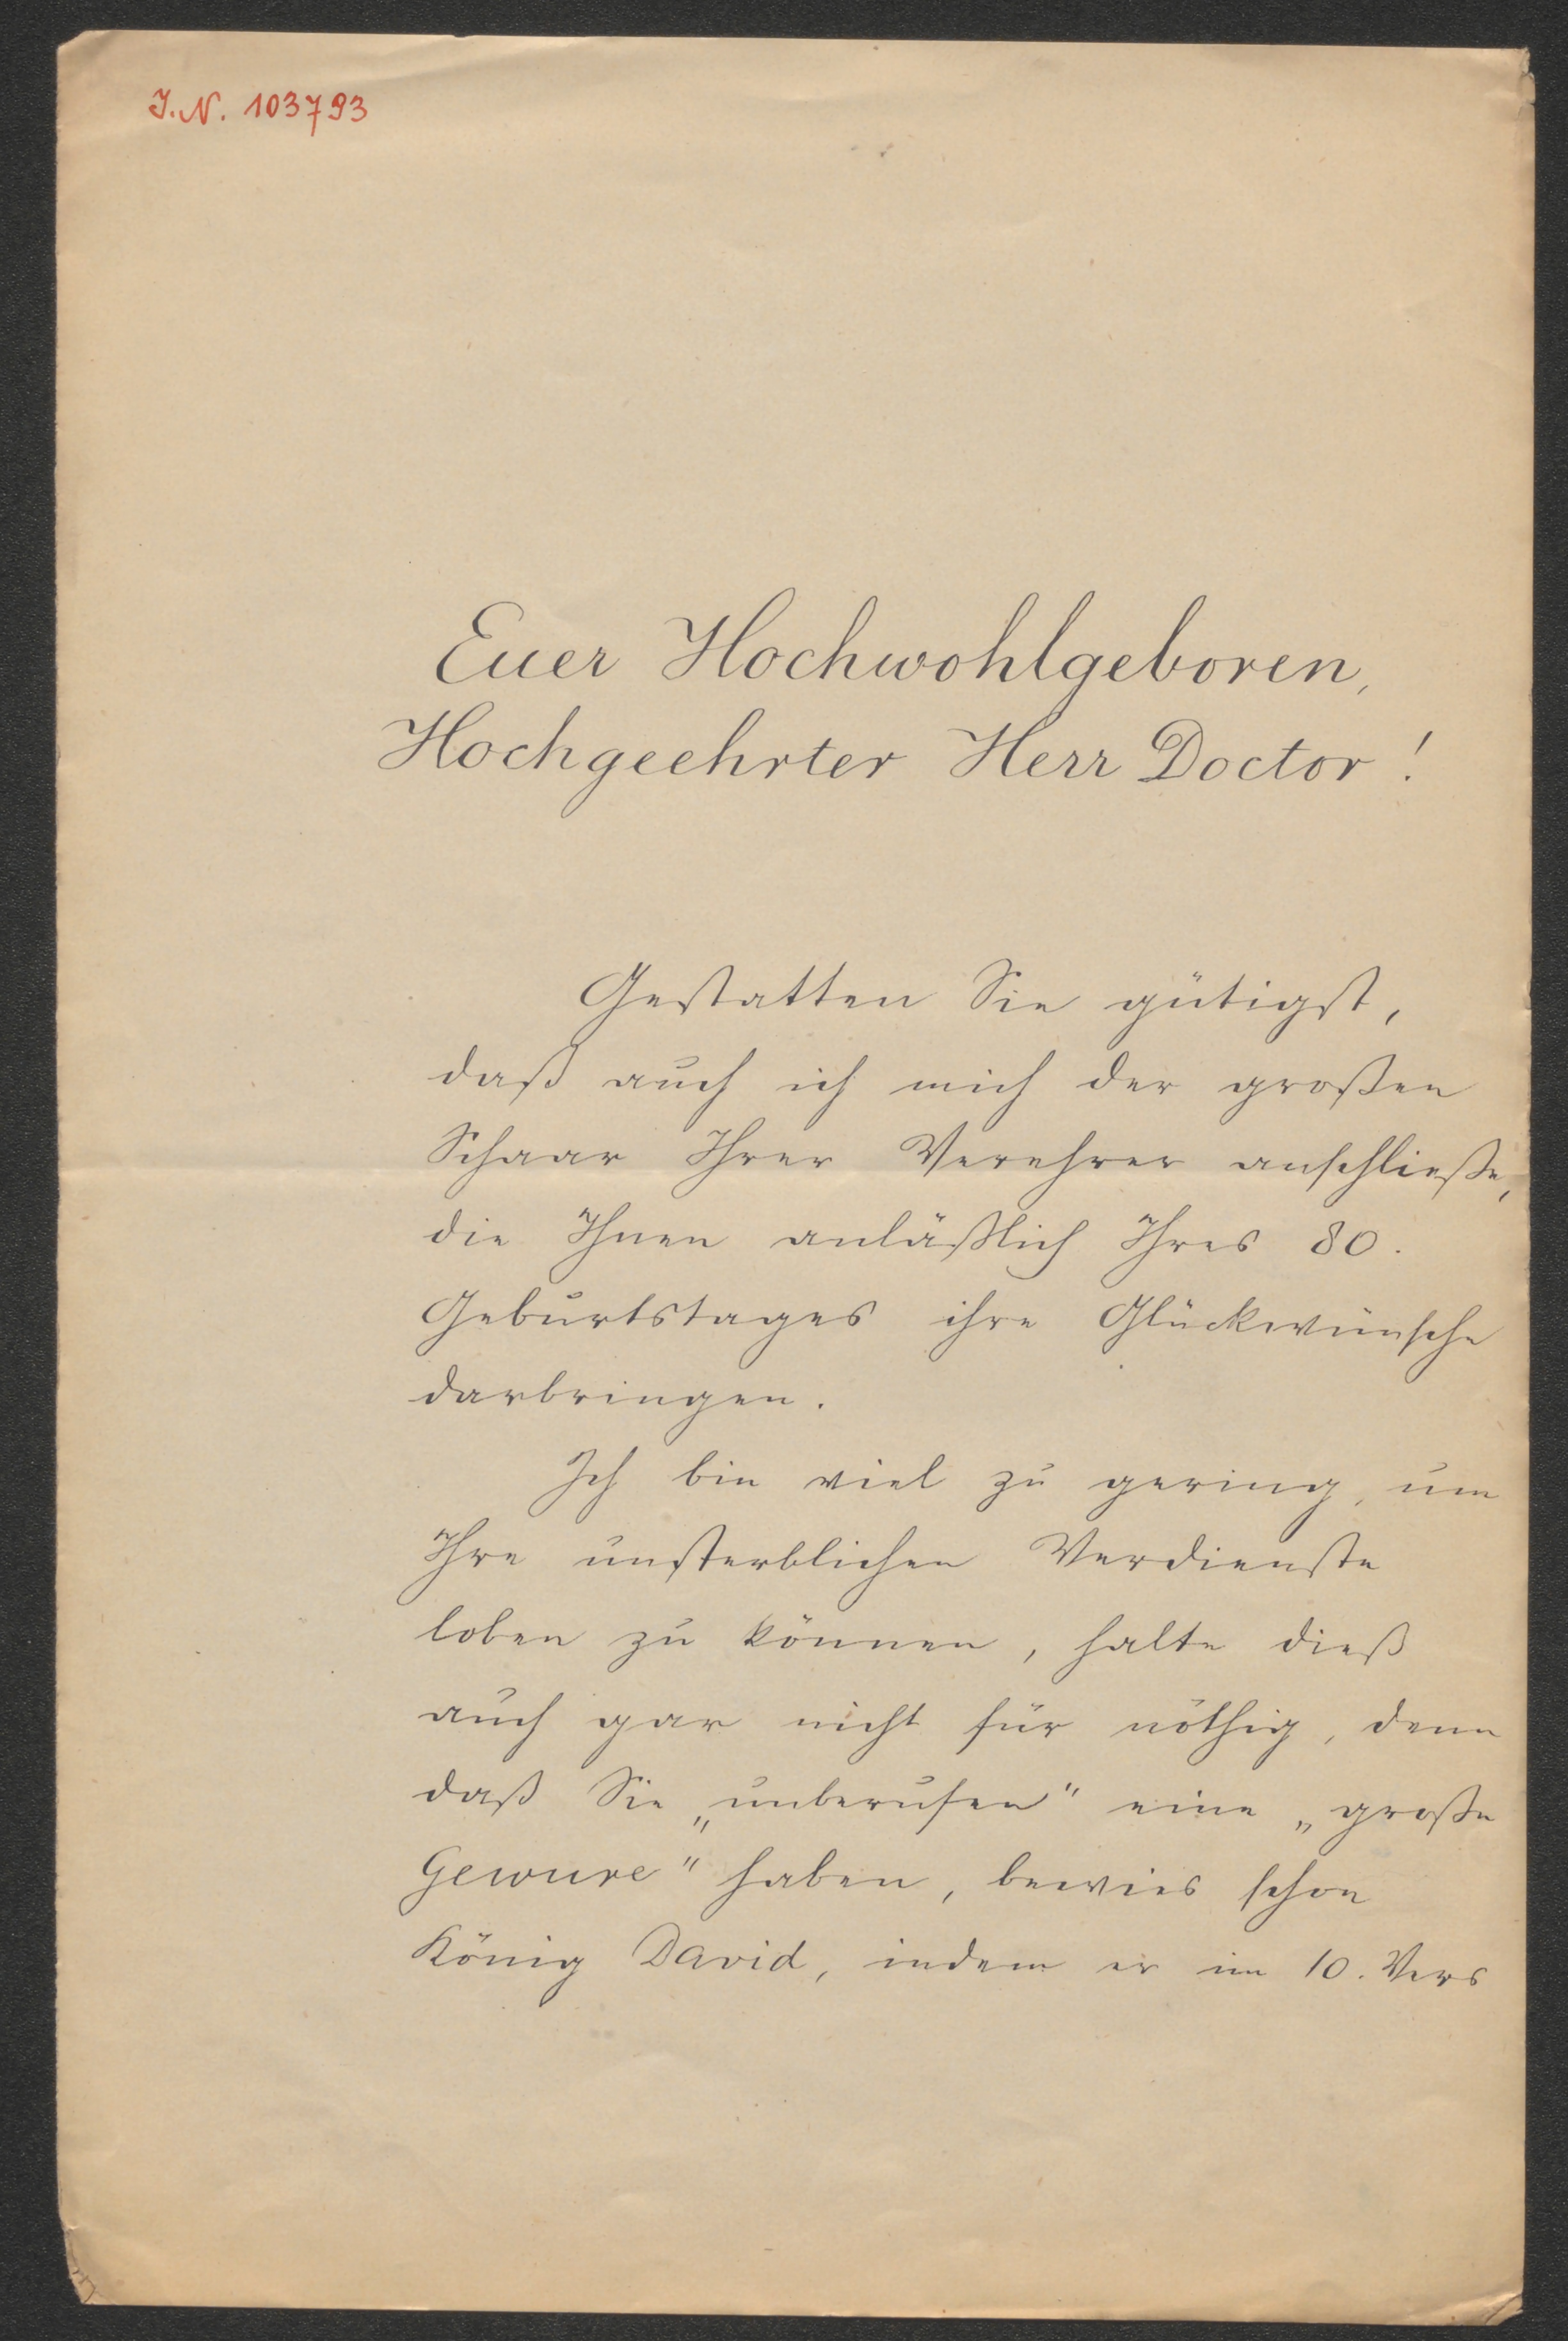 J.N. 103793
Euer Hochwohlgeboren,
Hochgeehrter Herr Doctor!
Gestatten Sie gütigst,
daß auch ich mich der großen
Schaar Ihrer Verehrer anschließe,
die Ihnen anläßlich Ihres 80.
Geburtstages ihre Glückwünsche
darbringen.
Ich bin viel zu gering, um
Ihre unsterblichen Verdienste
loben zu können, halte dieß
auch gar nicht für nöthig, denn
daß Sie „unberufen" eine „große
Gewure" haben, bewies schon
König David, indem er im 10. Vers